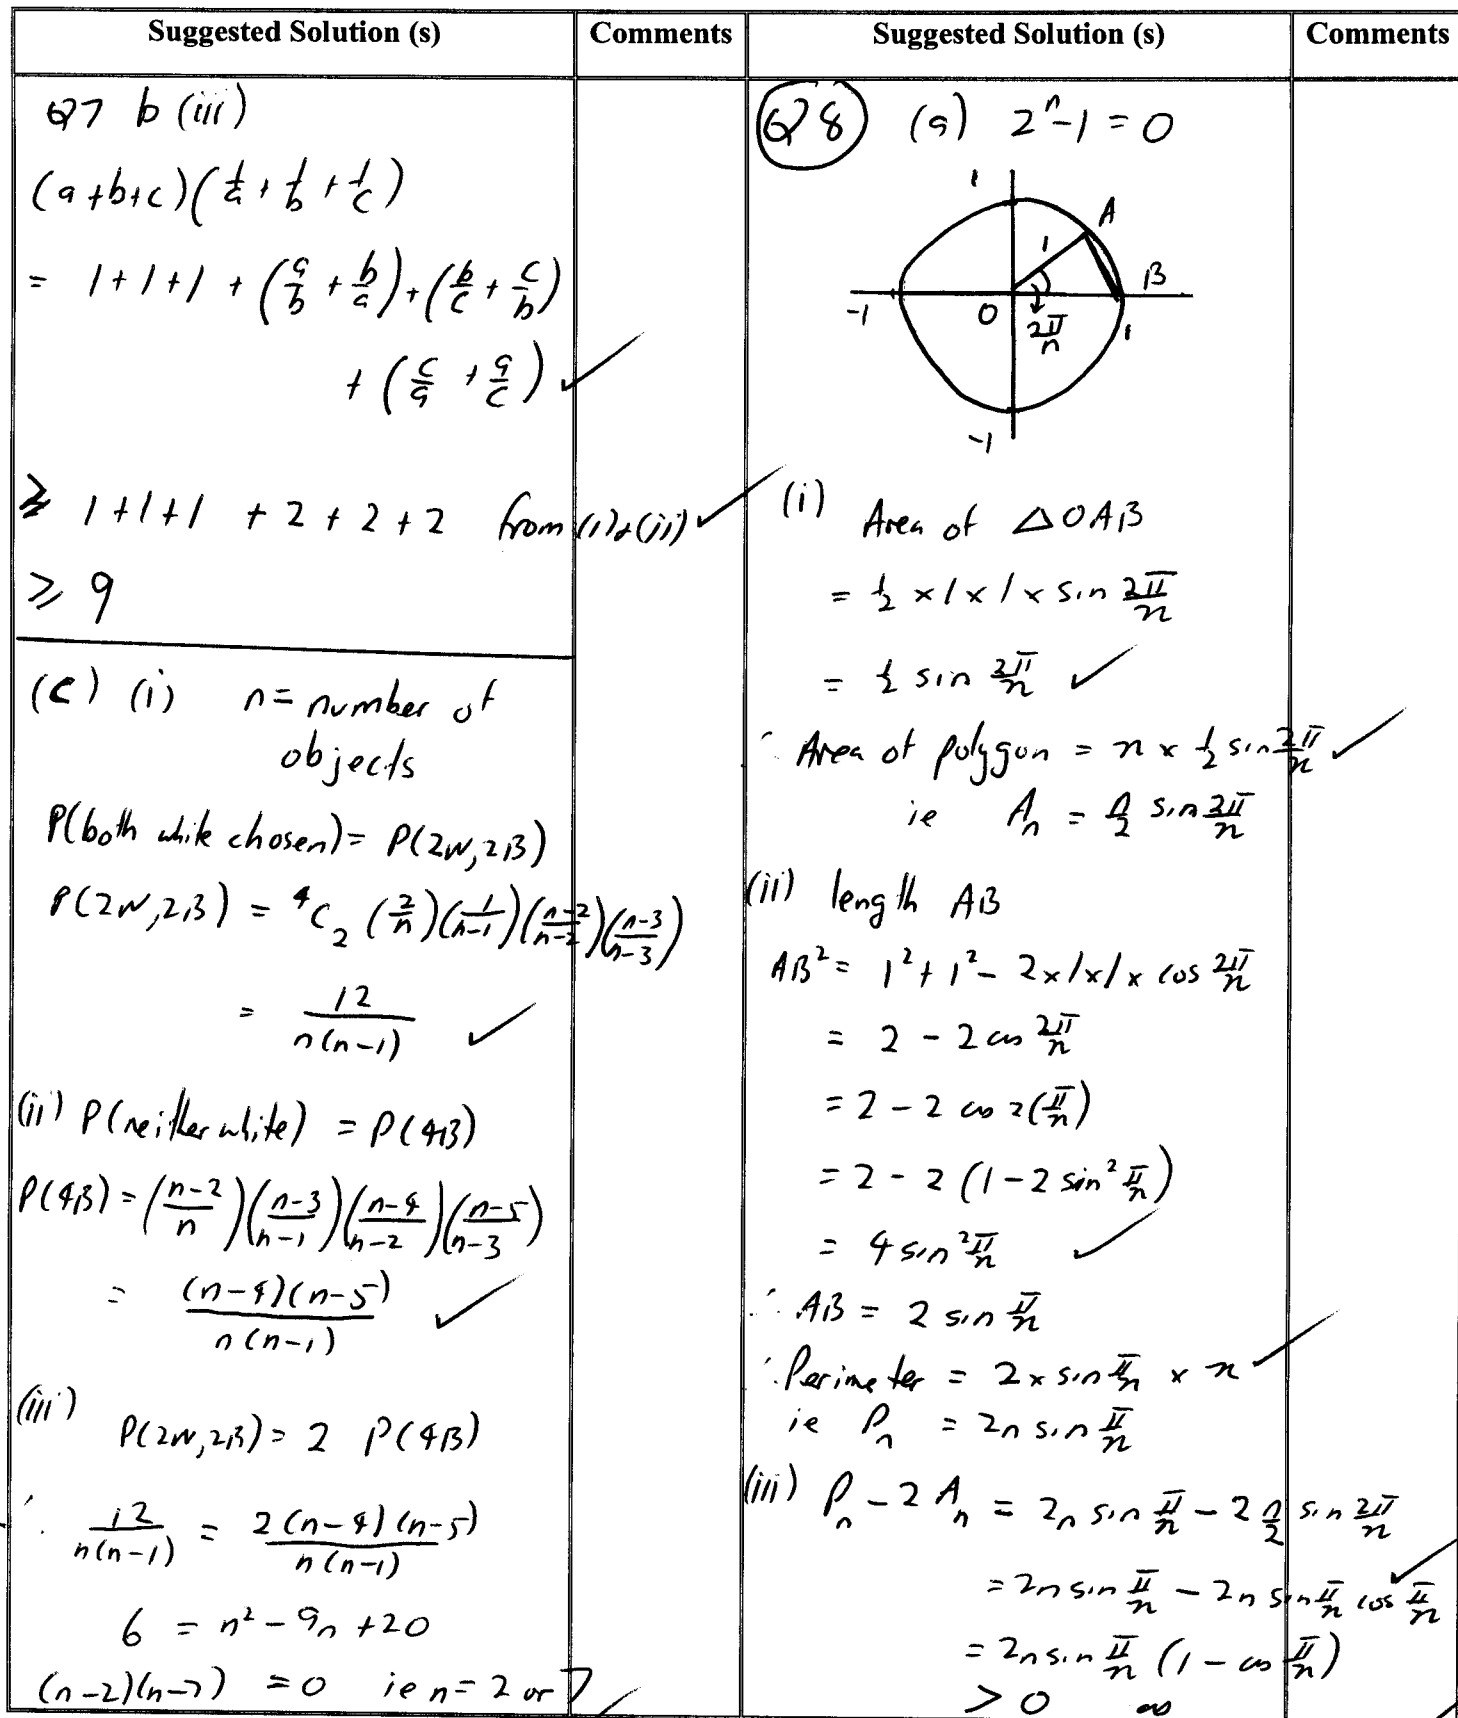 Suggested Solution (s)
Comments
Q7 b (iii)
(a+b+c)(1/a + 1/b + 1/c)
= 1+1+1 + (a/b + b/a) + (b/c + c/b)
+ (c/a + a/c) ✓
≥ 1+1+1 + 2+2+2 from (i)+(ii) ✓
≥ 9
(c) (i) n = number of
objects
P(both white chosen) = P(2W,2B)
P(2W,2B) = ⁴C₂ (2/n)(1/(n-1))((n-2)/(n-2))((n-3)/(n-3))
= 12/(n(n-1)) ✓
(ii) P(neither white) = P(4B)
P(4B) = ((n-2)/n)((n-3)/(n-1))((n-4)/(n-2))((n-5)/(n-3))
= (n-4)(n-5)/(n(n-1)) ✓
(iii)
P(2W,2B) = 2 P(4B)
∴ 12/(n(n-1)) = 2(n-4)(n-5)/(n(n-1))
6 = n² - 9n + 20
(n-2)(n-7) = 0 ie n = 2 or 7
Suggested Solution (s)
Comments
Q8 (a) zⁿ-1 = 0
1
A
1
B
-1
O
2π/n
1
-1
(i) Area of △OAB
= ½ × 1 × 1 × sin 2π/n
= ½ sin 2π/n ✓
∴ Area of polygon = n × ½ sin 2π/n ✓
ie Aₙ = n/2 sin 2π/n
(ii) length AB
AB² = 1² + 1² - 2×1×1× cos 2π/n
= 2 - 2 cos 2π/n
= 2 - 2 cos 2(π/n)
= 2 - 2 (1 - 2 sin² π/n)
= 4 sin² π/n ✓
∴ AB = 2 sin π/n
∴ Perimeter = 2 × sin π/n × n ✓
ie Pₙ = 2n sin π/n
(iii) Pₙ - 2Aₙ = 2n sin π/n - 2 n/2 sin 2π/n
= 2n sin π/n - 2n sin π/n cos π/n ✓
= 2n sin π/n (1 - cos π/n)
> 0 as